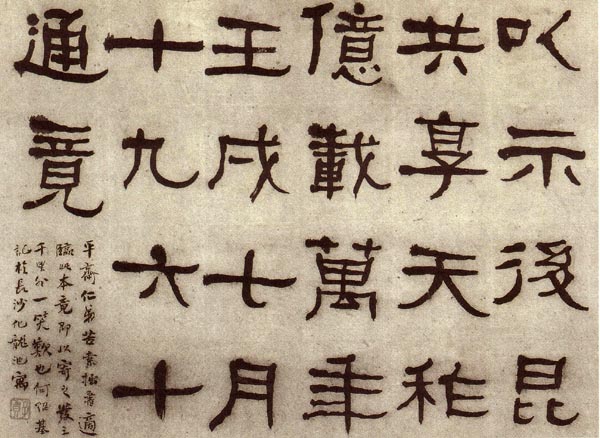 以示後昆
共享天祚
億載萬年
壬戌七月
十九六十
通竟
平齋仁弟苦索拙書適
臨此本竟即以寄之發三
千里外一笑歎也何紹基
記於長沙化龍池寓